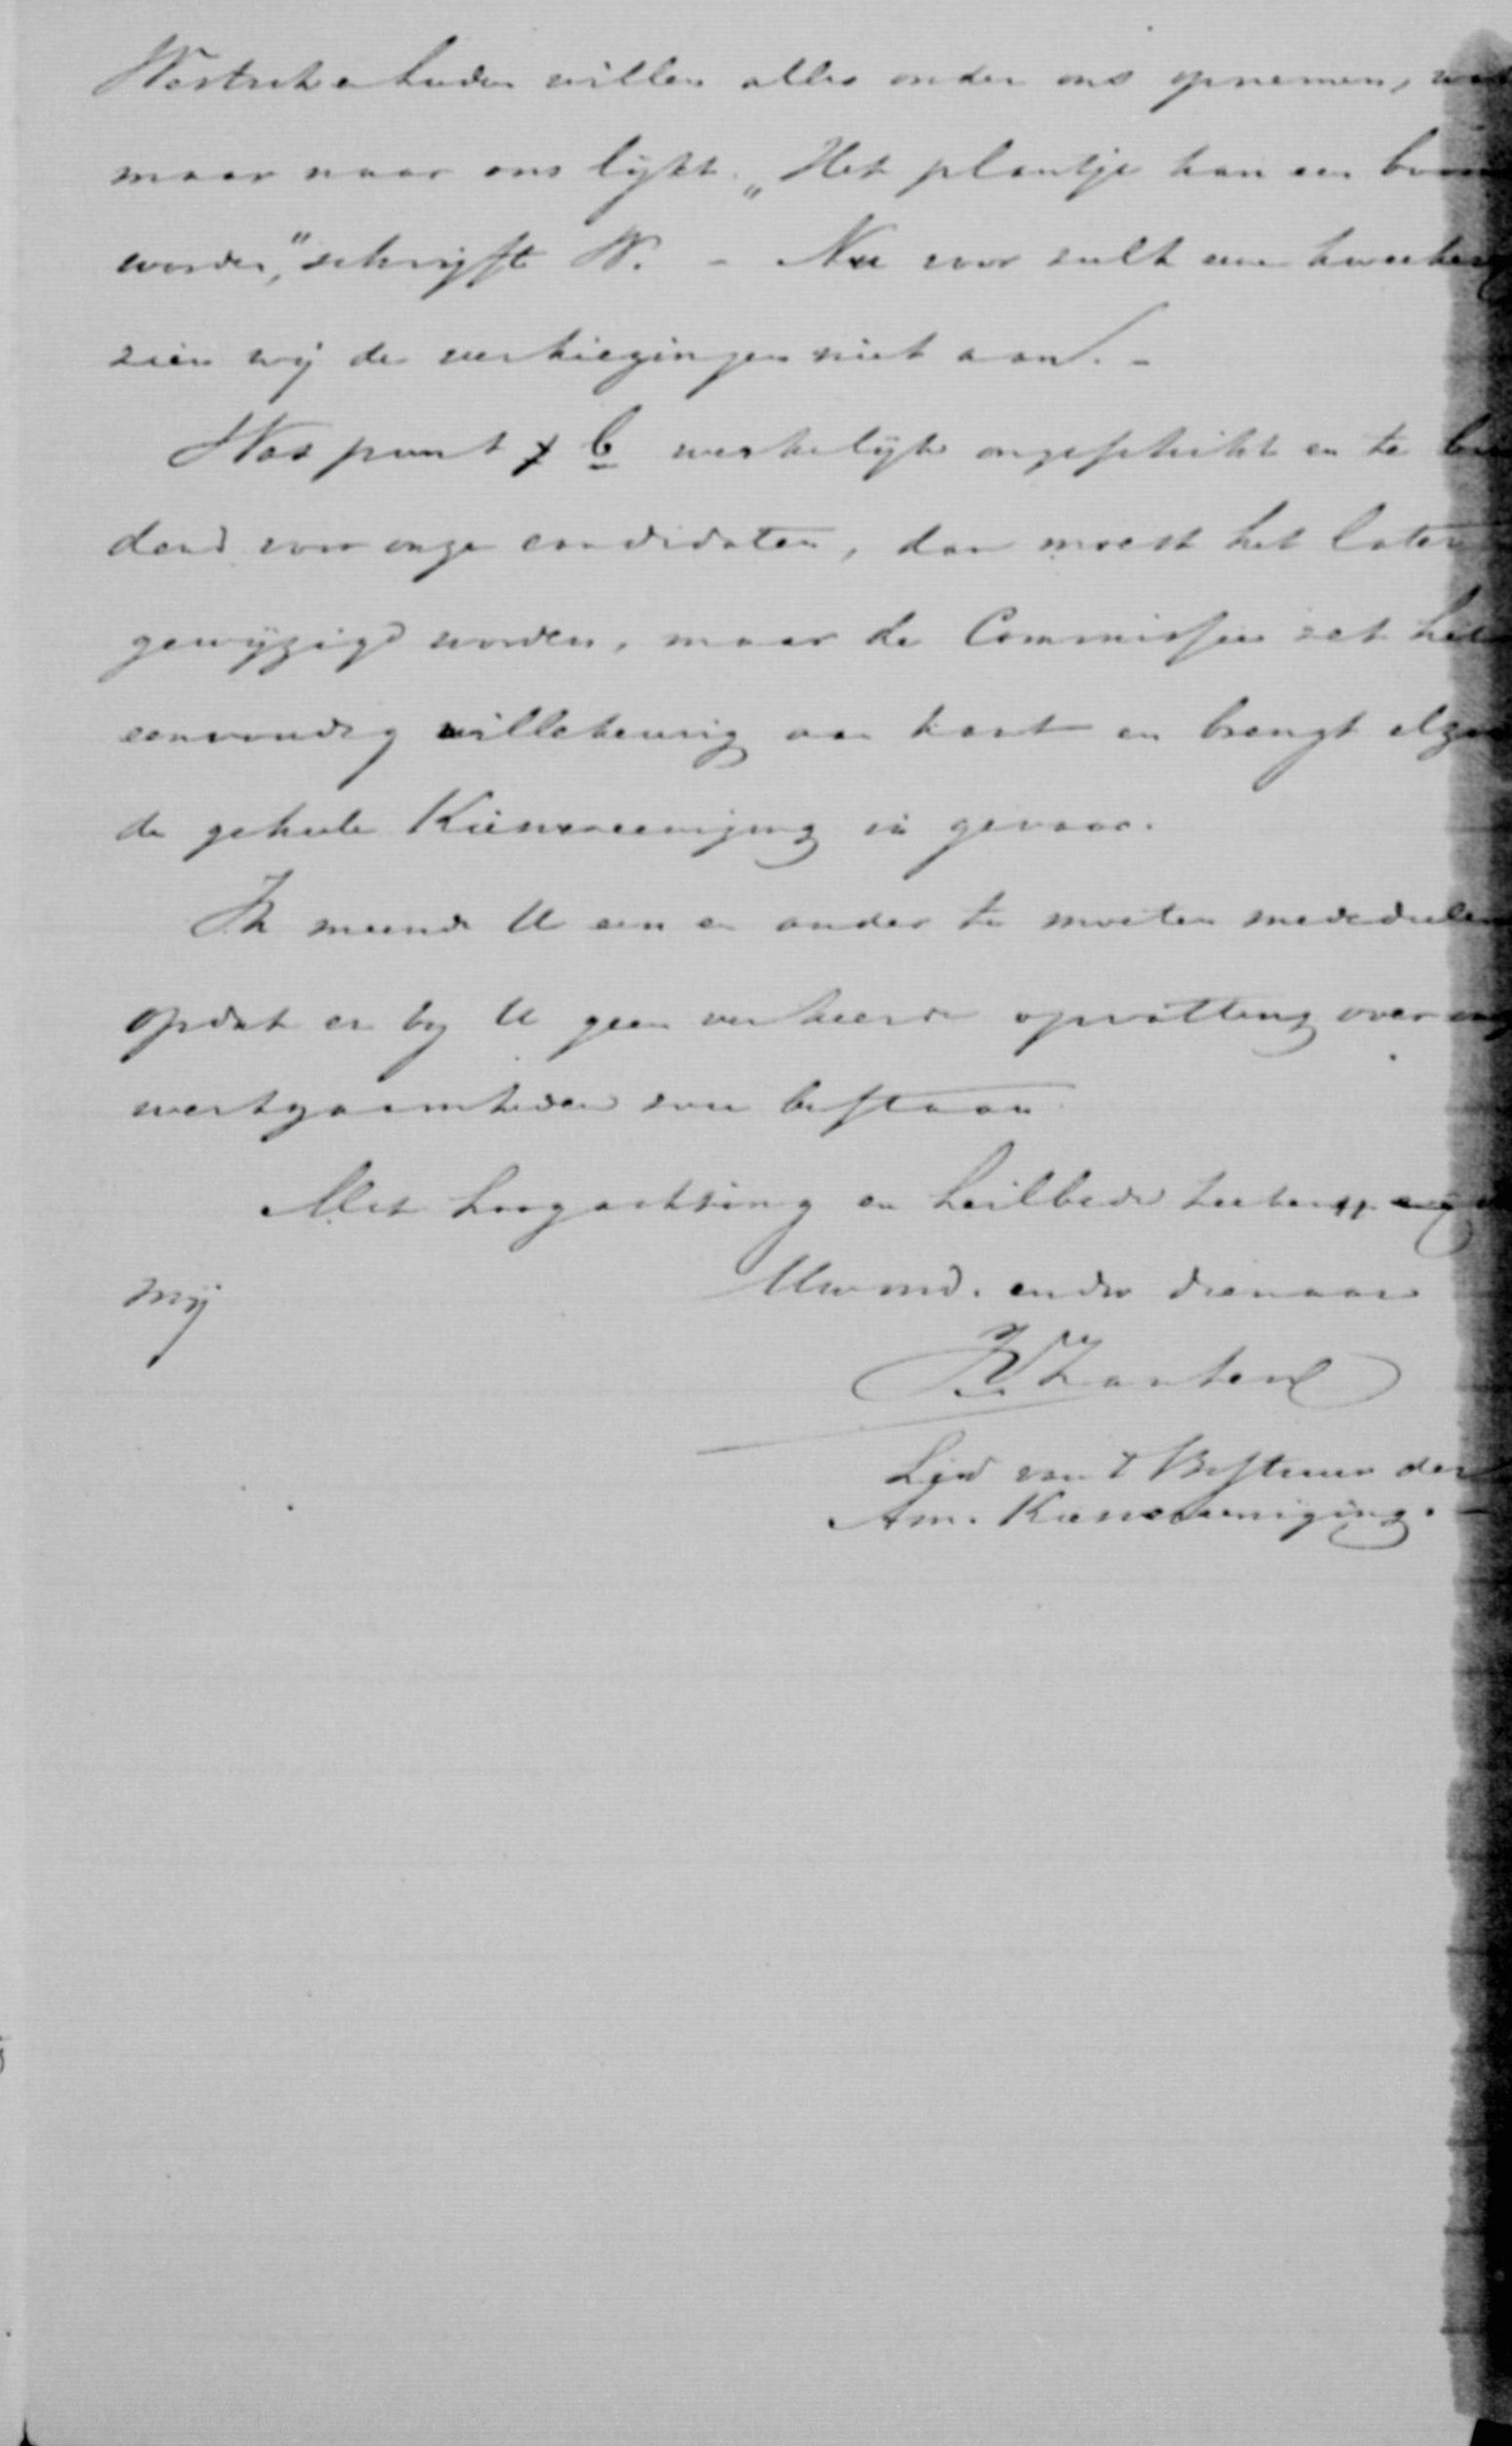 willen alles onder ons opnemen,
maar naar ons lijkt. „Het plantje kan een boom
worden," schrijft W. - Nu voor zulk een
zien wij de verkiezingen niet aan. -
Was punt b werkelijk ongeschikt en te
dend voor onze candidaten, dan moest het later
gewijzigd worden, maar de Commissie zet het
eenvoudig willekeurig aan kant en brengt alzoo
de geheele Kiesvereeniging in gevaar.
Ik meende U een en ander te moeten mededeelen
opdat er bij U geen verkeerde opvatting over onze
werkzaamheden zou bestaan
Met hoogachting en heilbede
mij
Uw dienaar
Lid van 't Bestuur der
Am. Kiesvereeniging. -